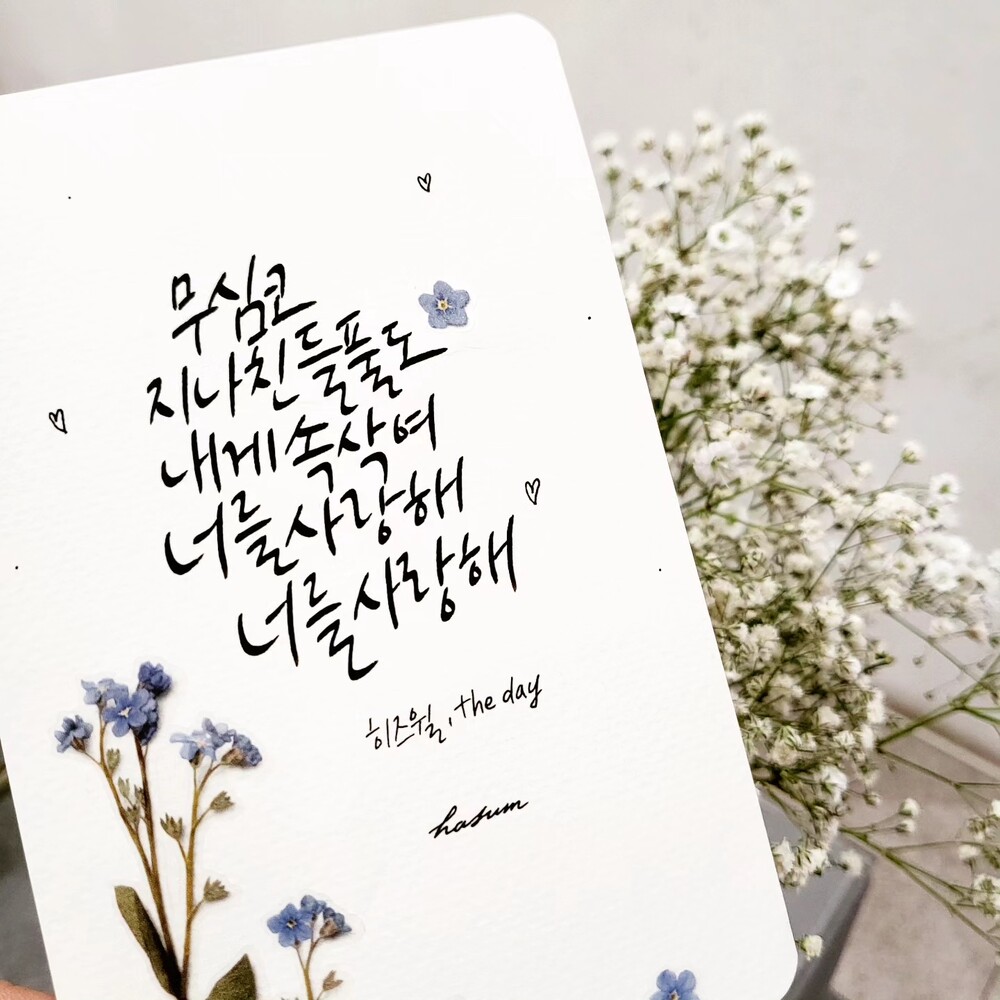 무심코
지나친 들풀도
내게 속삭여
너를 사랑해
너를 사랑해
히즈윌, the day
hasum